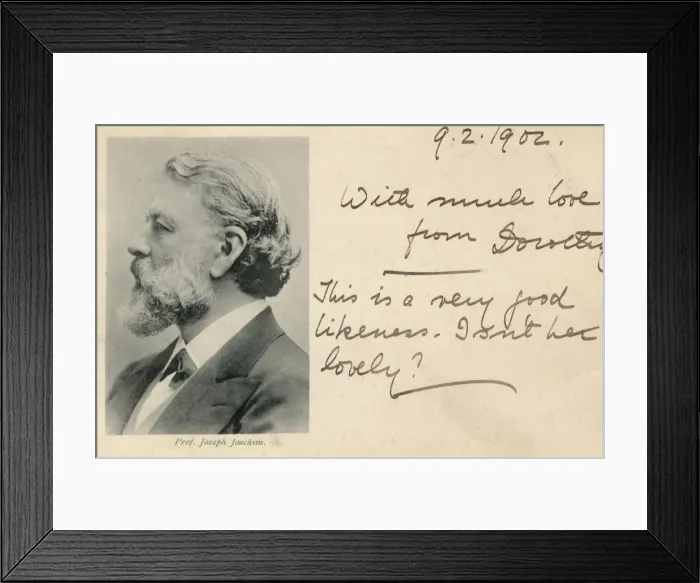 9.2.1902.
With much love
from Dorothy
This is a very good
likeness. Isn't he
lovely?
Prof. Joseph Joachim.